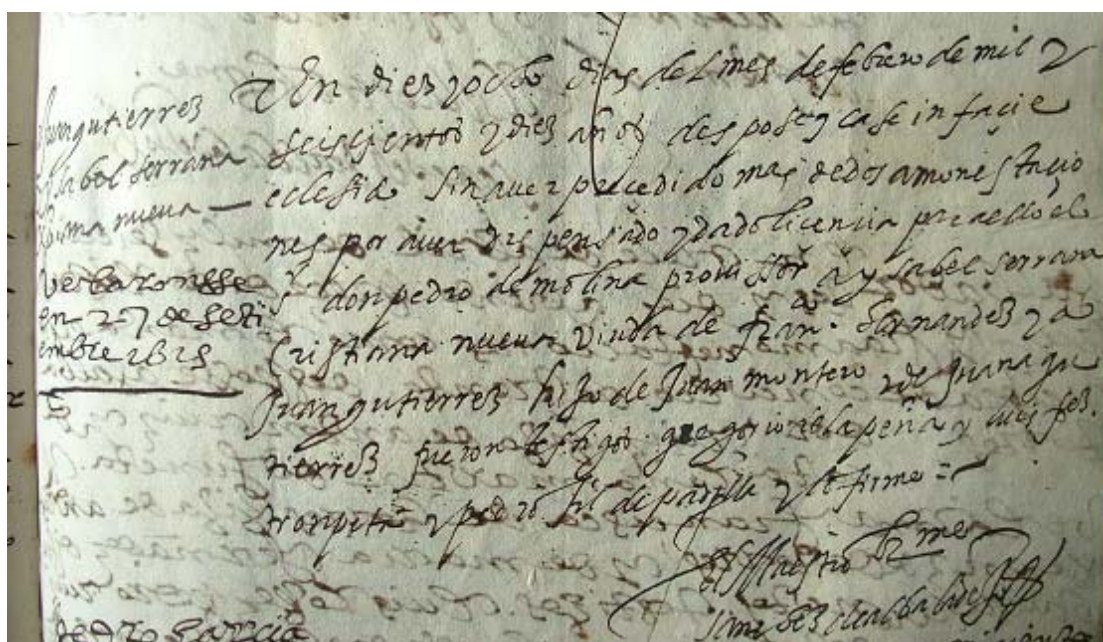 Juan gutierrez
ysabel serrana
xpistiana nueva
Velaronsse
en 27 de seti
embre 1615
En diez y ocho dias del mes de febrero de mil y
seiscientos y diez años despose y case in façie
eclesia sin aver precedido mas de dos amonestacio
nes por aver dispensado y dado licencia para ello el
sr don pedro de molina provissor a ysabel serrana
Cristiana nueva viuda de franco. Hernandez y a
Juan gutierrez hijo de Juan montero y de Juana gu
tierrez fueron testigos gregorio de la peña y luis fez
tronpeta y pedro gil de padilla y lo firme =
el Maestro
Pedro Garcia